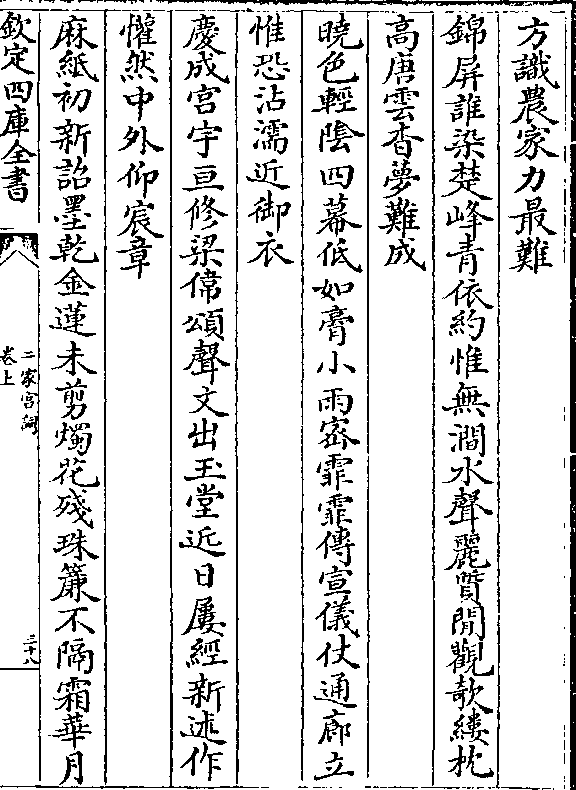 方識農家力最難
錦屏誰染楚峰青依約惟無澗水聲麗質閒觀欹縷枕
高唐雲杳夢難成
曉色輕陰四幕低如膏小雨密霏霏傳宣儀仗通廊立
惟恐沾濡近御衣
慶成宮宇亘修梁偉頌聲文出玉堂近日屢經新述作
懽然中外仰宸章
麻紙初新詔墨乾金蓮未剪燭花殘珠簾不隔霜華月
欽定四庫全書
二家宮詞
卷上
三十八